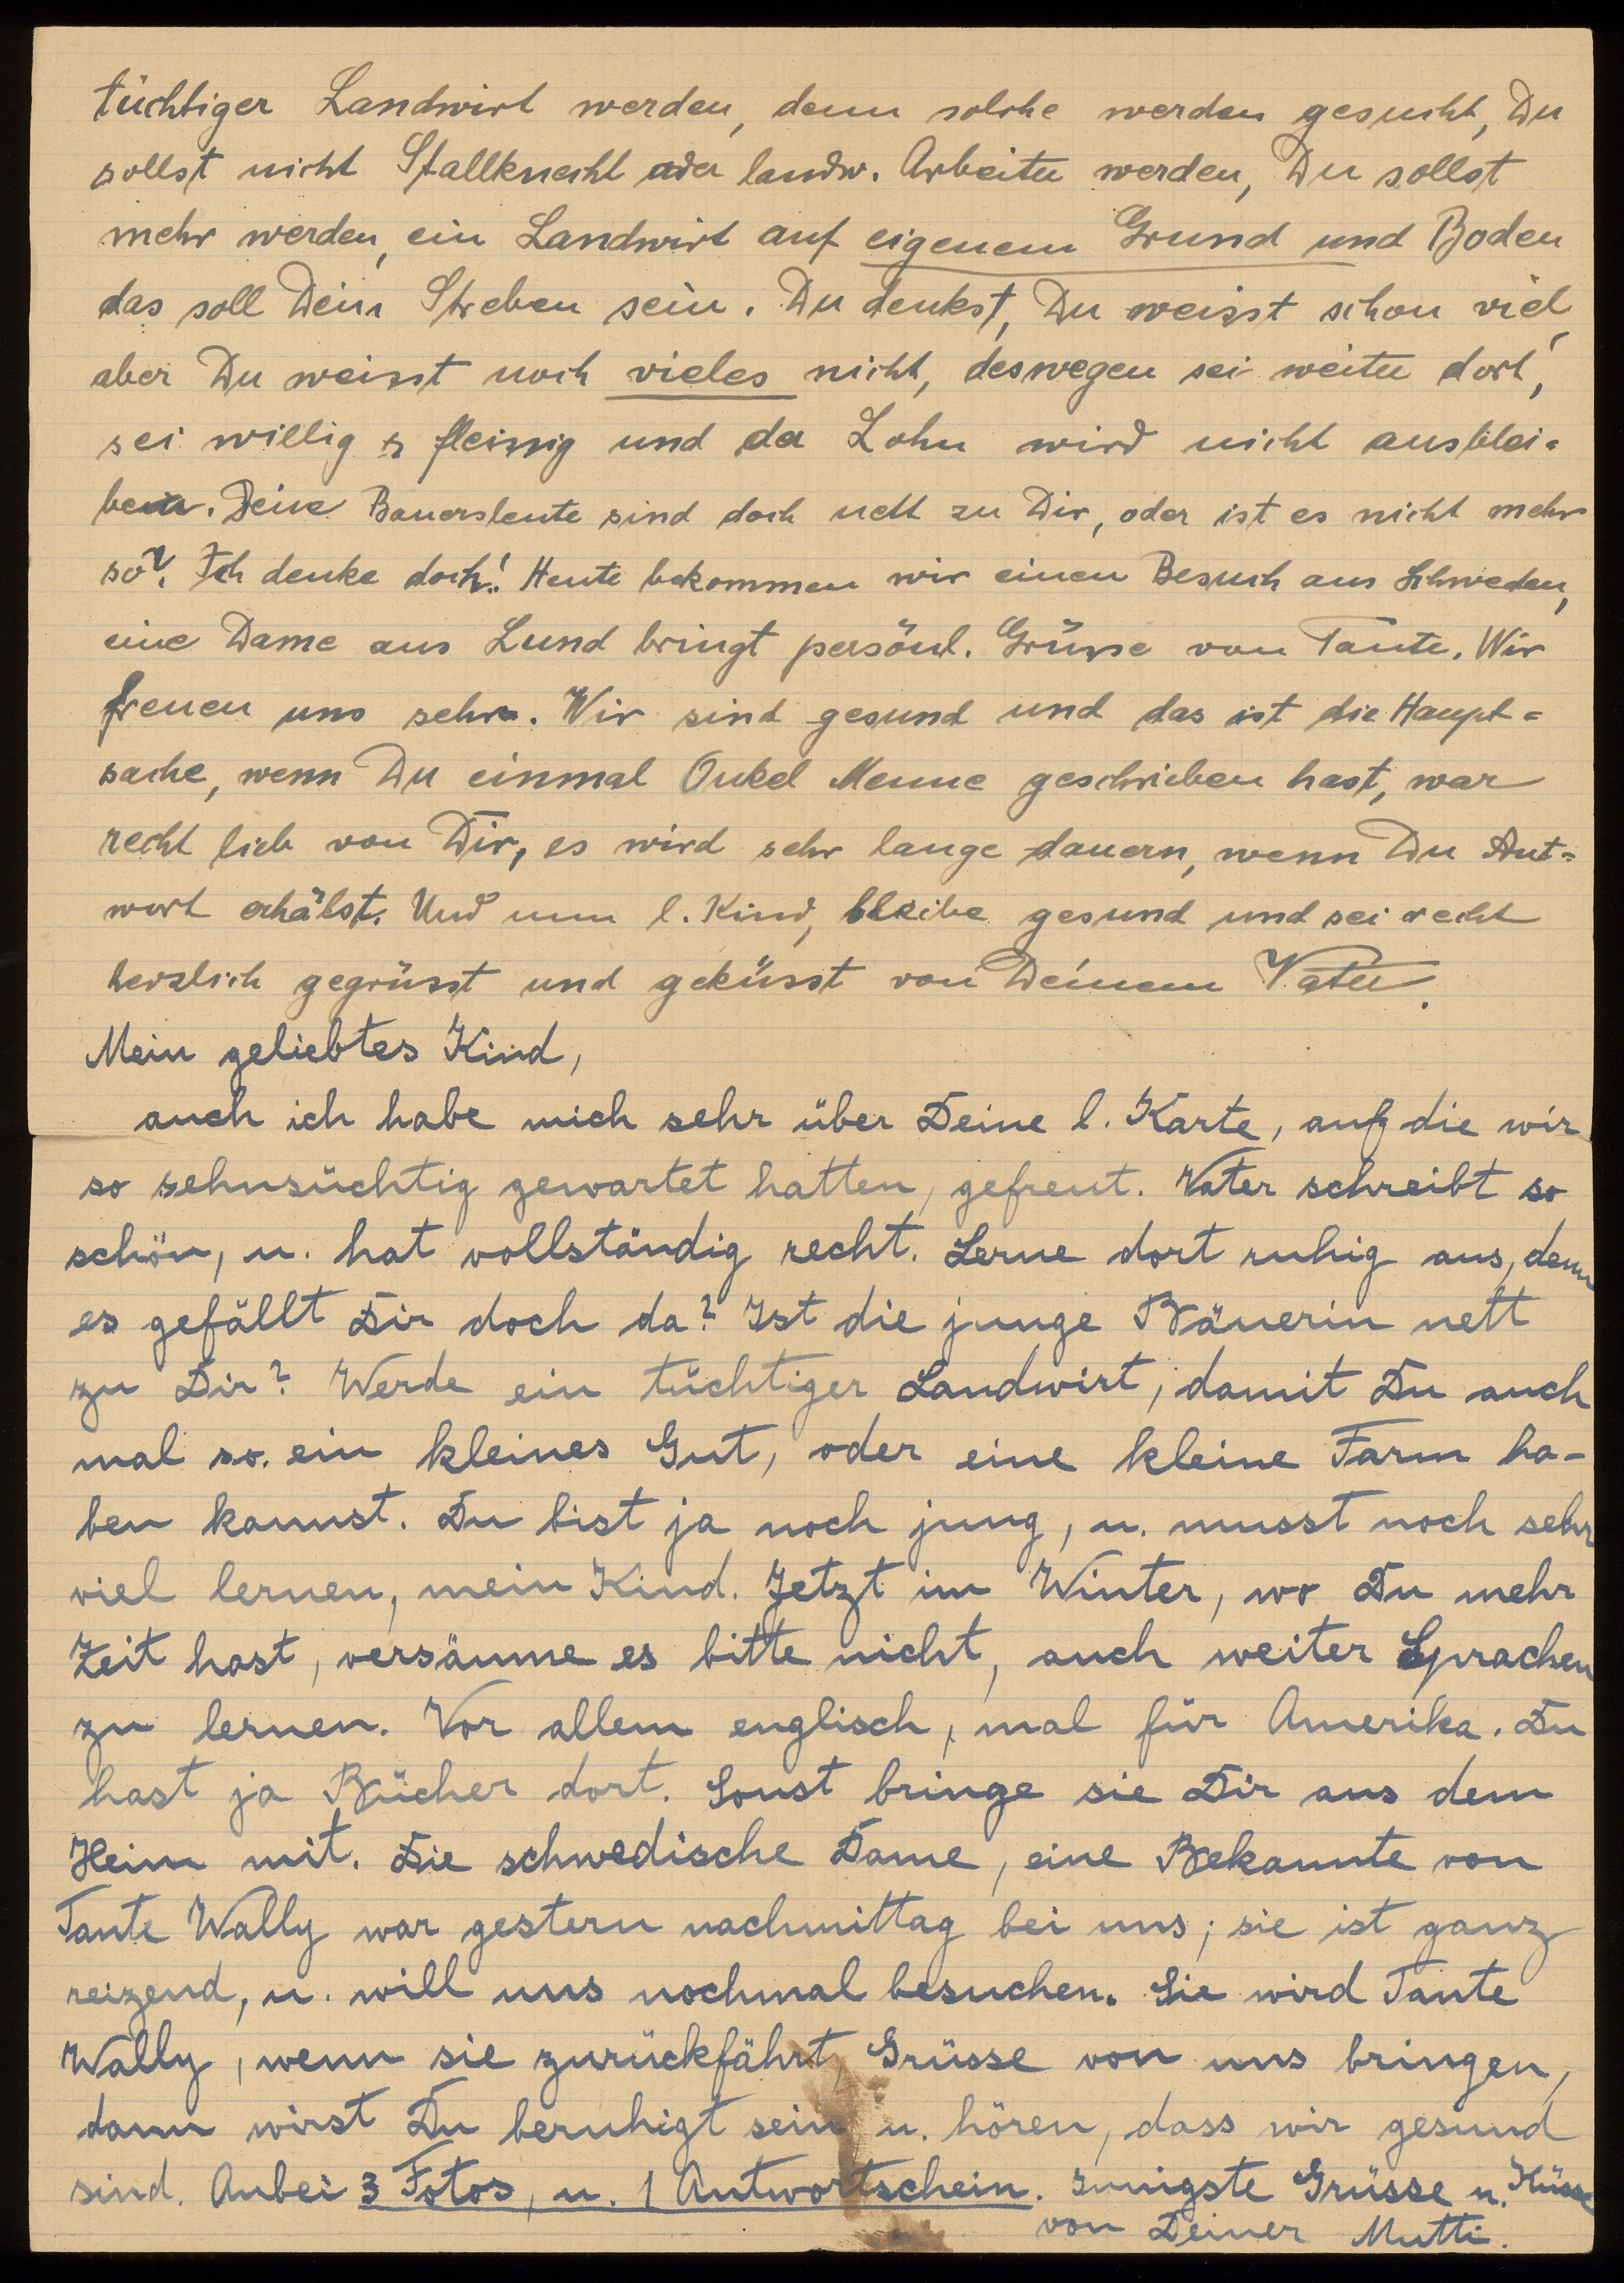 tüchtiger Landwirt werden, denn solche werden gesucht, Du
sollst nicht Stallknecht oder landw. Arbeiter werden, Du sollst
mehr werden, ein Landwirt auf eigenem Grund und Boden
das soll Dein Streben sein. Du denkst, Du weisst schon viel,
aber Du weisst noch vieles nicht, deswegen sei weiter dort,
sei willig & fleissig und der Lohn wird nicht ausblei=
ben. Deine Bauersleute sind doch nett zu Dir, oder ist es nicht mehr
so? Ich denke doch! Heute bekommen wir einen Besuch aus Schweden,
eine Dame aus Lund bringt persönl. Grüsse von Tante. Wir
freuen uns sehr. Wir sind gesund und das ist die Haupt=
sache, wenn Du einmal Onkel Menne geschrieben hast, war
recht lieb von Dir, es wird sehr lange dauern, wenn Du Ant=
wort erhälst. Und nun l. Kind, bleibe gesund und sei recht
herzlich gegrüsst und geküsst von Deinem Vater.
Mein geliebtes Kind,
auch ich habe mich sehr über Deine l. Karte, auf die wir
so sehnsüchtig gewartet hatten, gefreut. Vater schreibt so
schön, u. hat vollständig recht. Lerne dort ruhig aus, denn
es gefällt Dir doch da? Ist die junge Bäuerin nett
zu Dir? Werde ein tüchtiger Landwirt, damit Du auch
mal so. ein kleines Gut, oder eine kleine Farm ha-
ben kannst. Du bist ja noch jung, u. musst noch sehr
viel lernen, mein Kind. Jetzt im Winter, wo Du mehr
Zeit hast, versäume es bitte nicht, auch weiter Sprachen
zu lernen. Vor allem englisch, mal für Amerika. Du
hast ja Bücher dort. Sonst bringe sie Dir aus dem
Heim mit. Die schwedische Dame, eine Bekannte von
Tante Wally war gestern nachmittag bei uns; sie ist ganz
reizend, u. will uns nochmal besuchen. Sie wird Tante
Wally, wenn sie zurückfährt, Grüsse von uns bringen,
dann wirst Du beruhigt sein u. hören, dass wir gesund
sind. Anbei 3 Fotos, u. 1 Antwortschein. Innigste Grüsse u. Küsse
von Deiner Mutti.